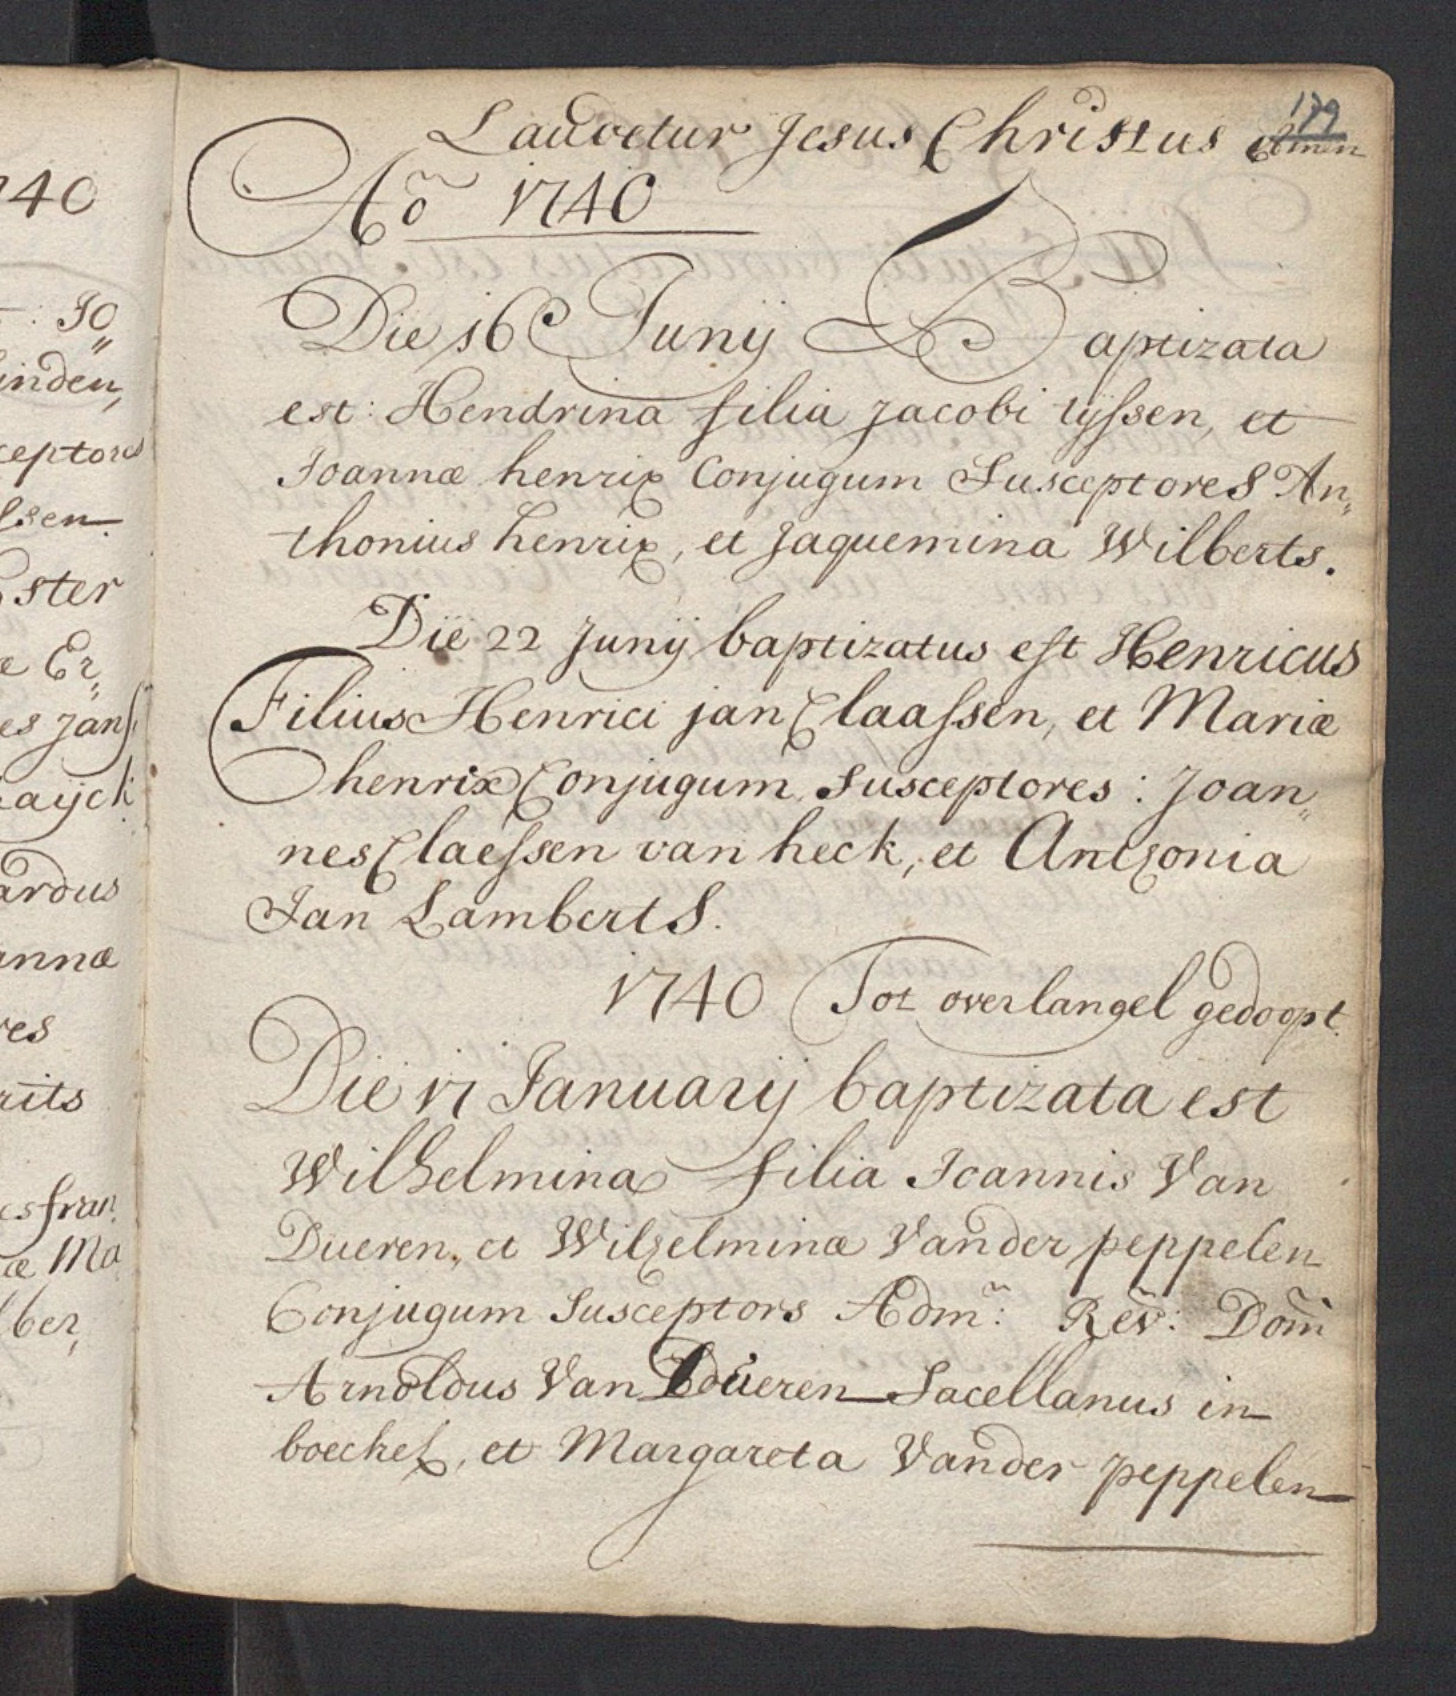 179
Laudetur Jesus Christus Amen
Ao 1740
Die 16e Junij Baptizata
est: Hendrina filia Jacobi tijssen, et
Joannæ henrix Conjugum Susceptores An„
thonius henrix, et Jaquemina Wilberts.
Die 22 Junij baptizatus est Henricus
Filius Henrici jan Claassen, et Mariæ
henrix Conjugum Susceptores: Joan„
nes Claessen van heck, et Antonia
Jan Lamberts.
1740 Tot overlangel gedoopt.
Die 17 Januarij baptizata est
Wilhelmina filia Joannis Van
Dueren, et Wilhelminæ Vander peppelen
Conjugum Susceptors Adm: Rev: Dom
Arnoldus Van Dueren Sacellanus in
boeckel, et Margareta Vander peppelen
740
Jo„
inden,
ceptores
ssen
ster
æ Er„
es Jans
aijck
ardus
annæ
res
rits
es fran
æ Ma
ber,